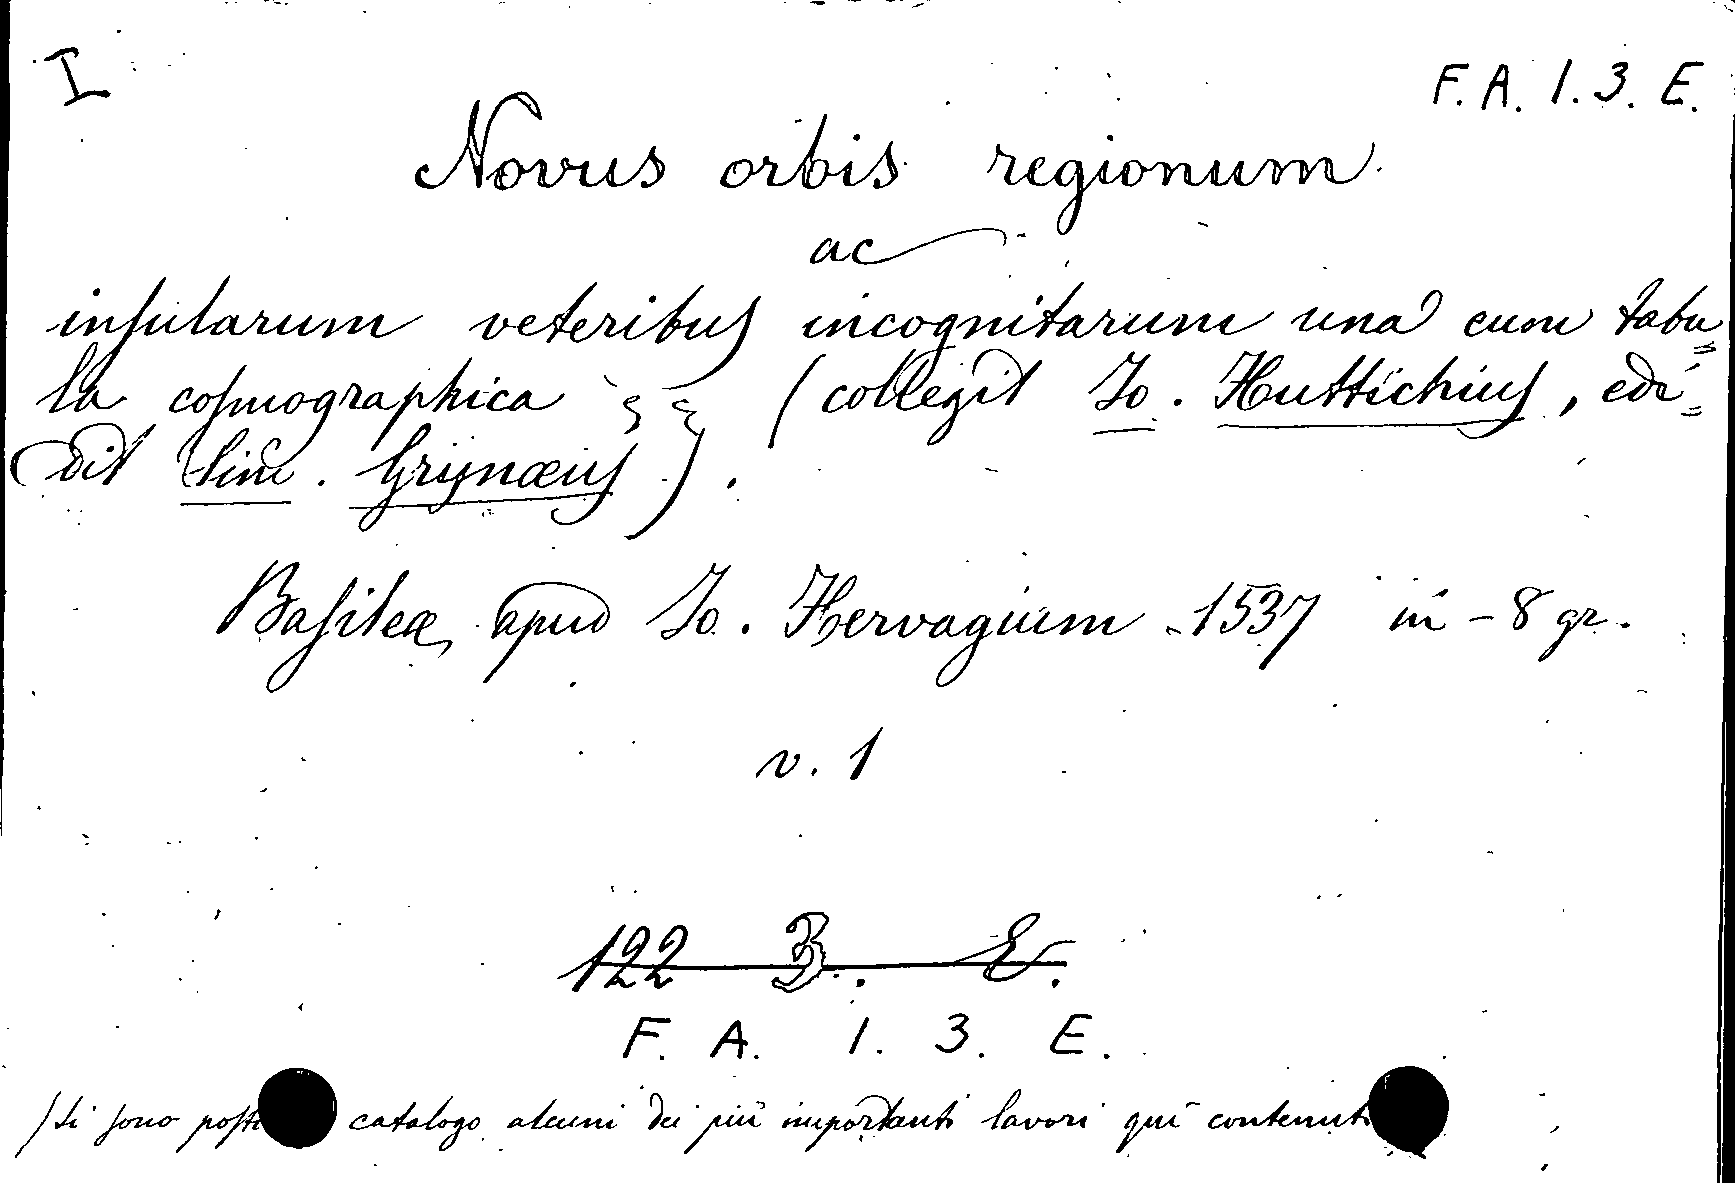 I
F. A. 1. 3. E.
Novus orbis regionum
ac
insularum veteribus incognitarum una cum tabu=
la cosmographica &c &c (collegit Jo. Huttichius, edi=
dit Sim. Grynæus).
Basileæ, apud Jo. Hervagium 1537 in-8 gr.
v. 1
122 B. E.
F. A. 1. 3. E.
(Si sono posti catalogo alcuni dei più importanti lavori quì contenuti